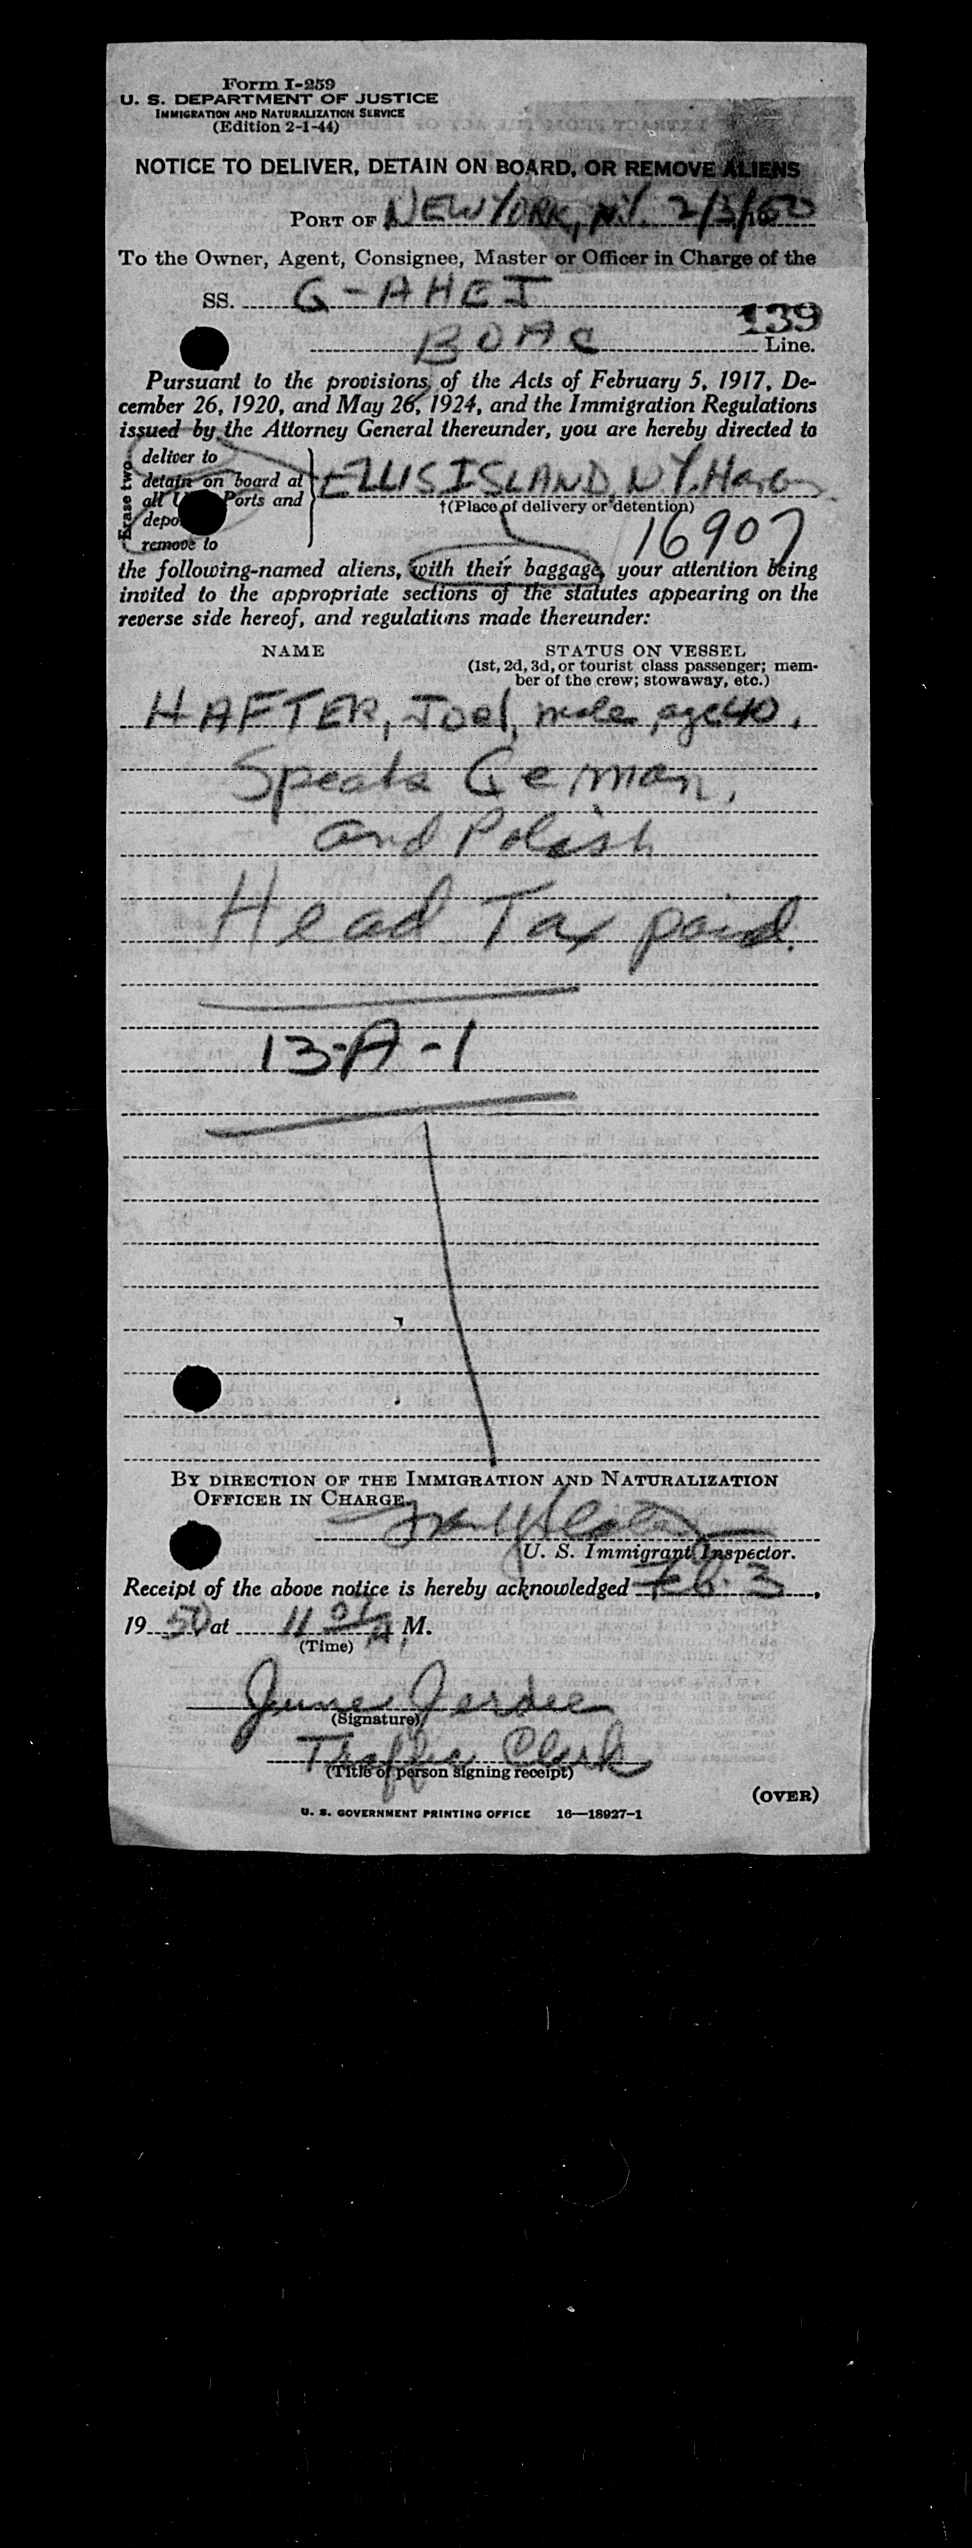 Form I-259
U. S. DEPARTMENT OF JUSTICE
IMMIGRATION AND NATURALIZATION SERVICE
(Edition 2-1-44)
NOTICE TO DELIVER, DETAIN ON BOARD, OR REMOVE ALIENS
PORT OF NEW YORK, N.Y. 2/3/1950
To the Owner, Agent, Consignee, Master or Officer in Charge of the
SS. G-AHEI
139
BOAC Line.
Pursuant to the provisions of the Acts of February 5, 1917, De-
cember 26, 1920, and May 26, 1924, and the Immigration Regulations
issued by the Attorney General thereunder, you are hereby directed to
Erase two
deliver to
detain on board at
all U Ports and
depo
remove to
ELLIS ISLAND, N.Y.
†(Place of delivery or detention)
16907
the following-named aliens, with their baggage, your attention being
invited to the appropriate sections of the statutes appearing on the
reverse side hereof, and regulations made thereunder:
NAME STATUS ON VESSEL
(1st, 2d, 3d, or tourist class passenger; mem-
ber of the crew; stowaway, etc.)
HAFTER, Joel, male, age 40,
Speaks German,
and Polish
Head Tax paid.
13-A-1
BY DIRECTION OF THE IMMIGRATION AND NATURALIZATION
OFFICER IN CHARGE.
U. S. Immigrant Inspector.
Receipt of the above notice is hereby acknowledged Feb. 3,
1950 at 11 A. M.
(Time)
June
(Signature)
Traffic Clerk
(Title of person signing receipt)
(OVER)
U. S. GOVERNMENT PRINTING OFFICE 16—18927-1